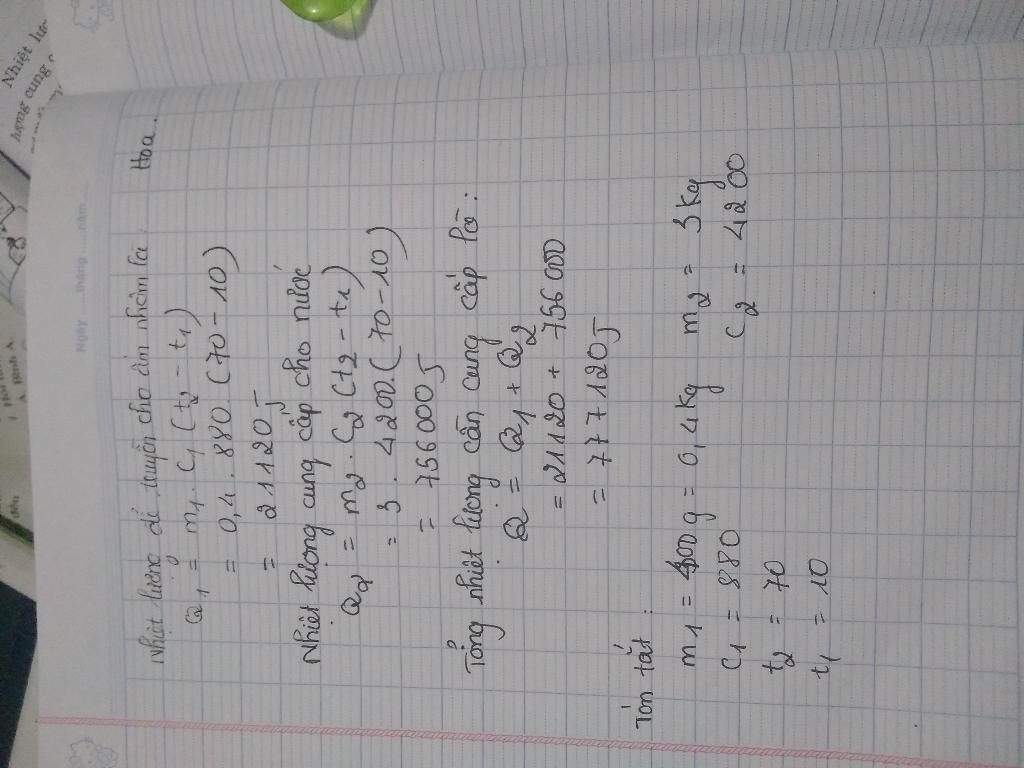 Nhiệt lượng để truyền cho ấm nhôm là: Hoa.
Q1 = m1. C1 (t2 - t1)
= 0,4. 880. (70 - 10)
= 21120J
Nhiệt lượng cung cấp cho nước
Q2 = m2. C2 (t2 - t1)
= 3. 4200. (70 - 10)
= 756000J
Tổng nhiệt lượng cần cung cấp là:
Q = Q1 + Q2
= 21120 + 756000
= 777120J
Tón tắt:
m1 = 400g = 0,4kg m2 = 3kg
C1 = 880 C2 = 4200
t2 = 70
t1 = 10
Ngày ......tháng ......năm......
Nhiệt lượ
lượng cung c